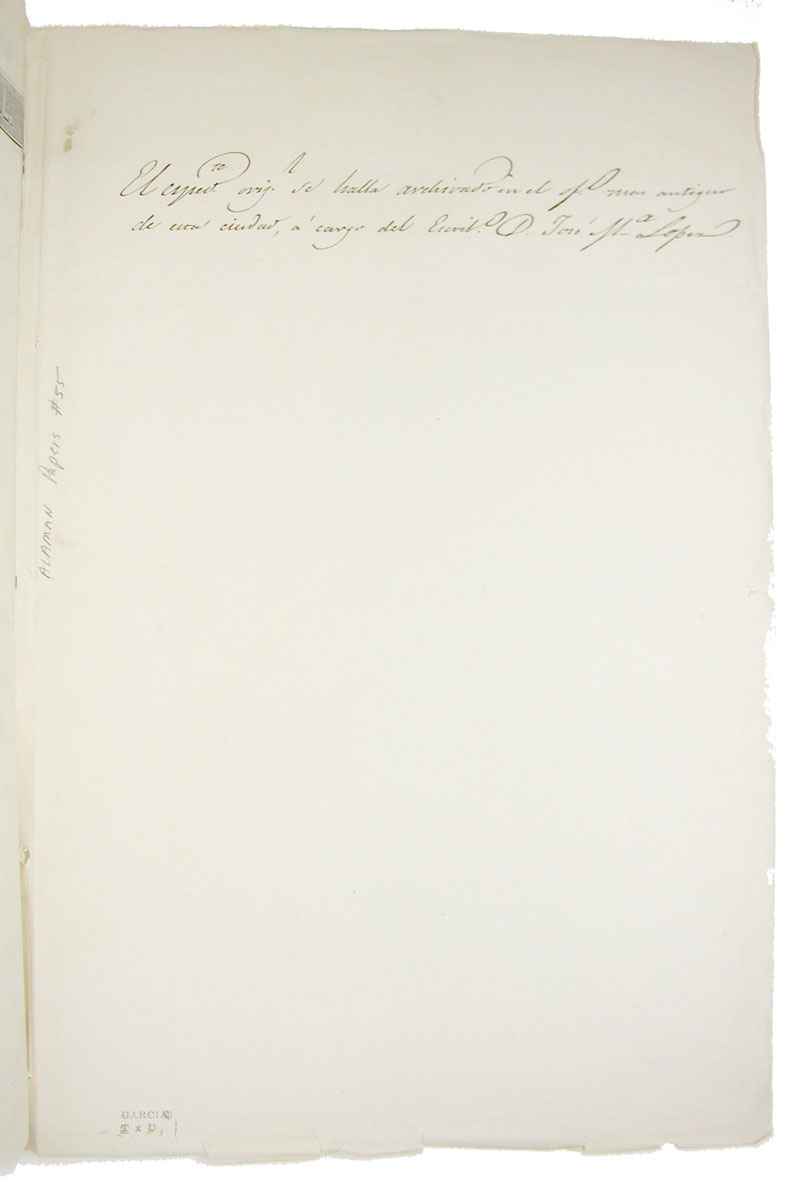 El exped.te orig.l se halla archivado en el of.o mas antiguo
de esa ciudad, á cargo del Escrib.o D. José M.a Lopez.
ALAMAN Papers #55
GARCIA
T x U,